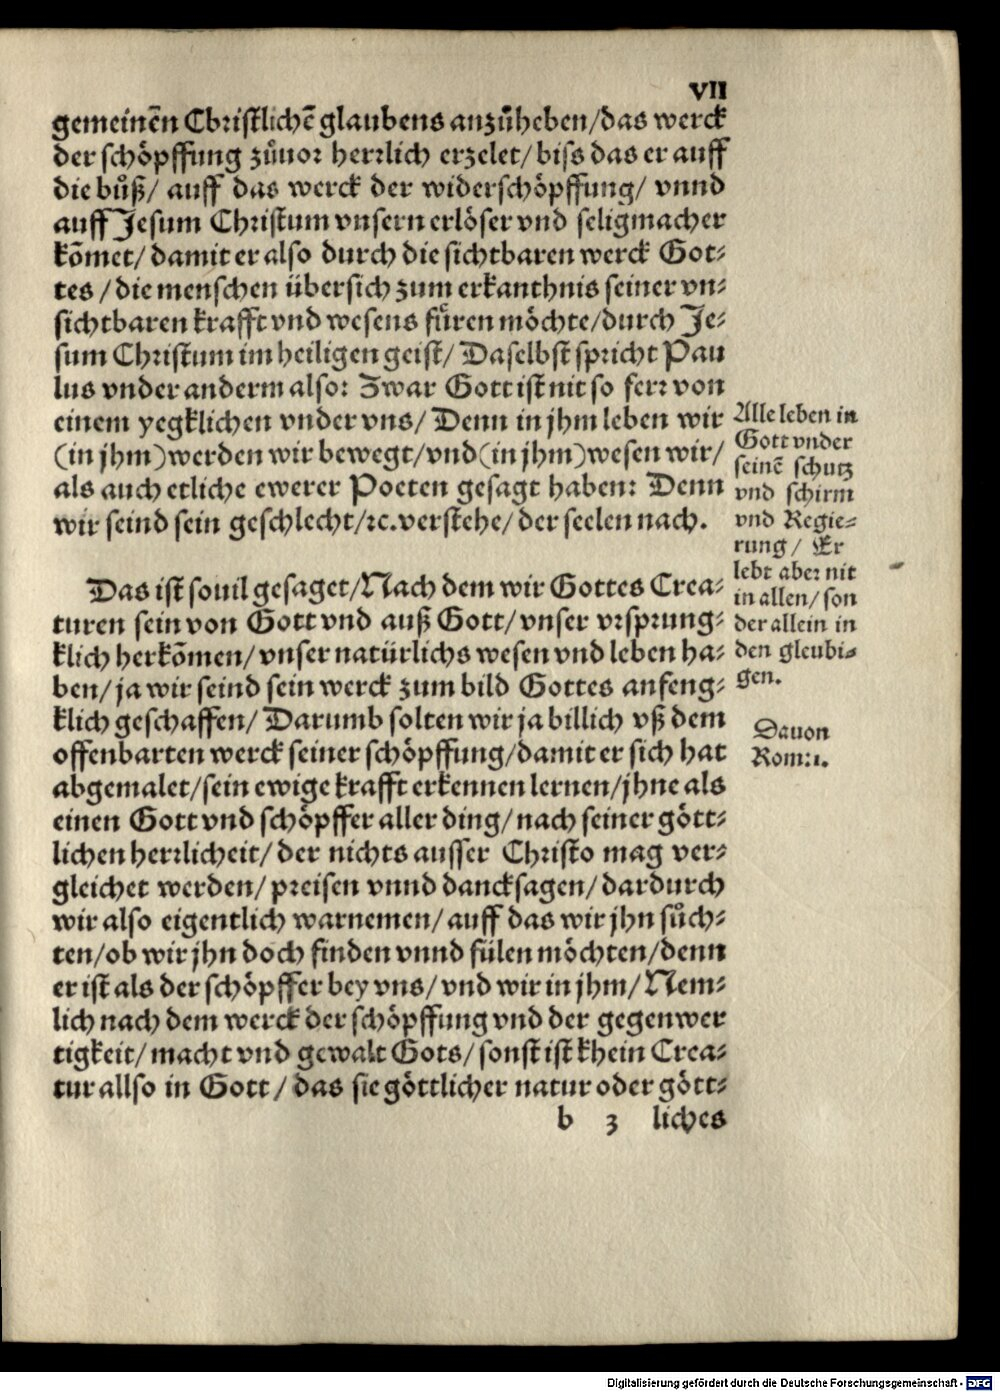 VII
gemeinēn Christlichē glaubens anzůheben/das werck
der schöpffung zůuor herrlich erzelet/biss das er auff
die bůß/ auff das werck der widerschöpffung/ vnnd
auff Jesum Christum vnsern erlöser vnd seligmacher
kōmet/damit er also durch die sichtbaren werck Got⸗
tes /die menschen übersich zum erkanthnis seiner vn⸗
sichtbaren krafft vnd wesens fůren möchte/durch Je⸗
sum Christum im heiligen geist/ Daselbst spricht Pau
lus vnder anderm also: Zwar Gott ist nit so ferr von
einem yegklichen vnder vns/ Denn in jhm leben wir
(in jhm)werden wir bewegt/vnd(in jhm)wesen wir/
als auch etliche ewerer Poeten gesagt haben: Denn
wir seind sein geschlecht/ꝛc.verstehe/der seelen nach.
Alle leben in
Gott vnder
seinē schutz
vnd schirm
vnd Regie⸗
rung/ Er
lebt aber nit
in allen/son
der allein in
den gleubi⸗
gen.
Das ist souil gesaget/Nach dem wir Gottes Crea⸗
turen sein von Gott vnd auß Gott/vnser vrsprung⸗
klich herkōmen/vnser natürlichs wesen vnd leben ha⸗
ben/ja wir seind sein werck zum bild Gottes anfeng⸗
klich geschaffen/ Darumb solten wir ja billich vß dem
offenbarten werck seiner schöpffung/damit er sich hat
abgemalet/sein ewige krafft erkennen lernen/jhne als
einen Gott vnd schöpffer aller ding/nach seiner gött⸗
lichen herrlicheit/der nichts ausser Christo mag ver⸗
gleichet werden/preisen vnnd dancksagen/dardurch
wir also eigentlich warnemen/auff das wir jhn sůch⸗
ten/ob wir jhn doch finden vnnd fülen möchten/denn
er ist als der schöpffer bey vns/vnd wir in jhm/Nem⸗
lich nach dem werck der schöpffung vnd der gegenwer
tigkeit/macht vnd gewalt Gots/sonst ist khein Crea⸗
tur allso in Gott/das sie göttlicher natur oder gött⸗
Dauon
Rom:1.
b 3 liches
Digitalisierung gefördert durch die Deutsche Forschungsgemeinschaft - DFG